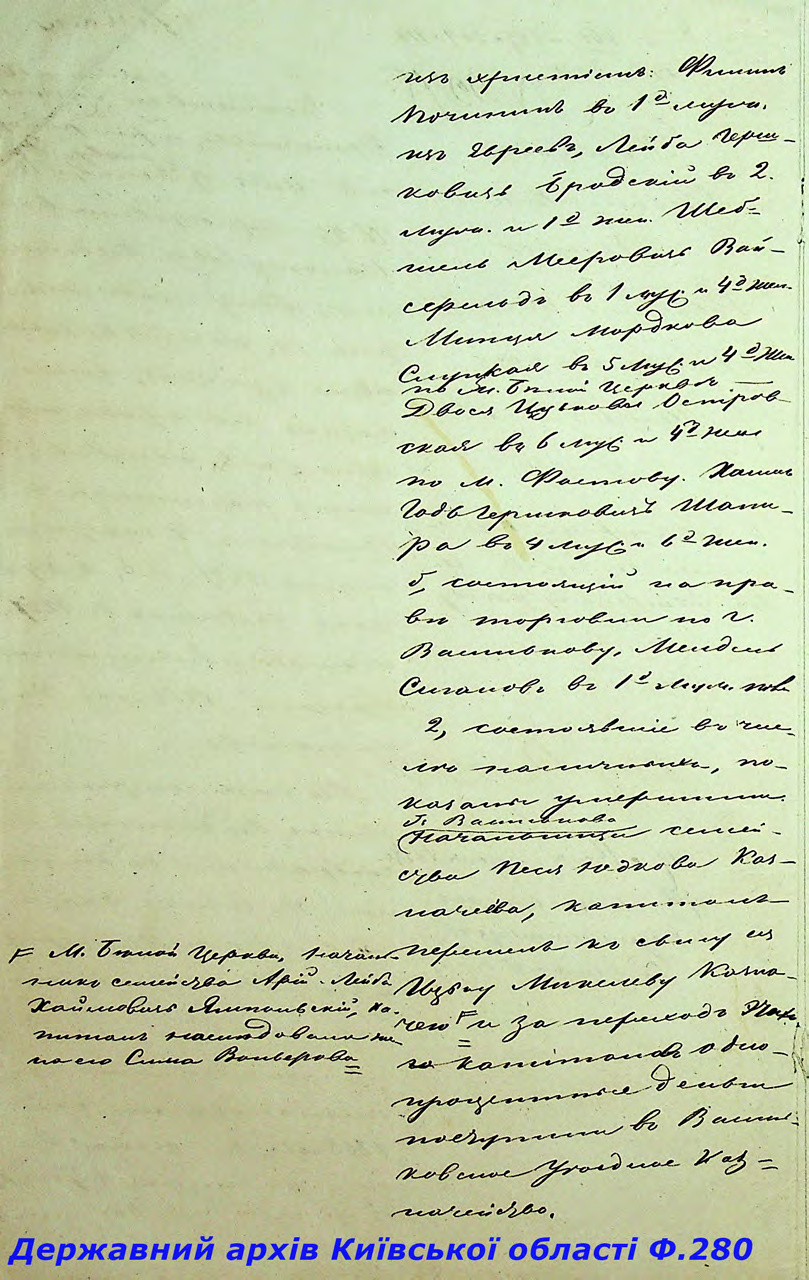 изъ христіанъ: Филипъ
Почининъ въ 1й муж.
изъ Евреевъ, Лейба Герш-
ковичъ Бродскій въ 2.
муж. и 1й жен. Шеб-
шель Мееровичъ Вай-
серфельдъ въ 1 муж. и 4й жен.
Минця Мордкова
Слуцкая въ 5 муж. и 4й жен
по М. Бѣлой Церквѣ
Двося Ицькова Остров-
ская въ 6 муж. и 4й жен
по м. Фастову. Хаимъ
Годъ Гершковичъ Шапи-
ра въ 4 муж. и 6й жен.
б, состоящій на пра-
вѣ торговли по г.
Василькову, Мендель
Сигаловъ въ 1й муж. полѣ
2, состоявшіе въ чис-
лѣ наличныхъ, по-
казаны умершими.
г. Василькова
Начальница семей-
ства Песя Юдкова Каз-
начеева, капиталъ
перешелъ къ сыну ея
Ицьку Михелеву Казна-
чею F и за переходъ
го капиталовъ одно-
процентные деньги
поступили въ Василь-
ковское Уѣздное Каз-
начейство.
F М. Бѣлой Церкви, Началь-
никъ семейства Арій-Лейба
Хаймовичъ Ямпольскій, ка-
питалъ наслѣдовала же-
на его Сима Вольфрова
Державний архів Київської області Ф.280